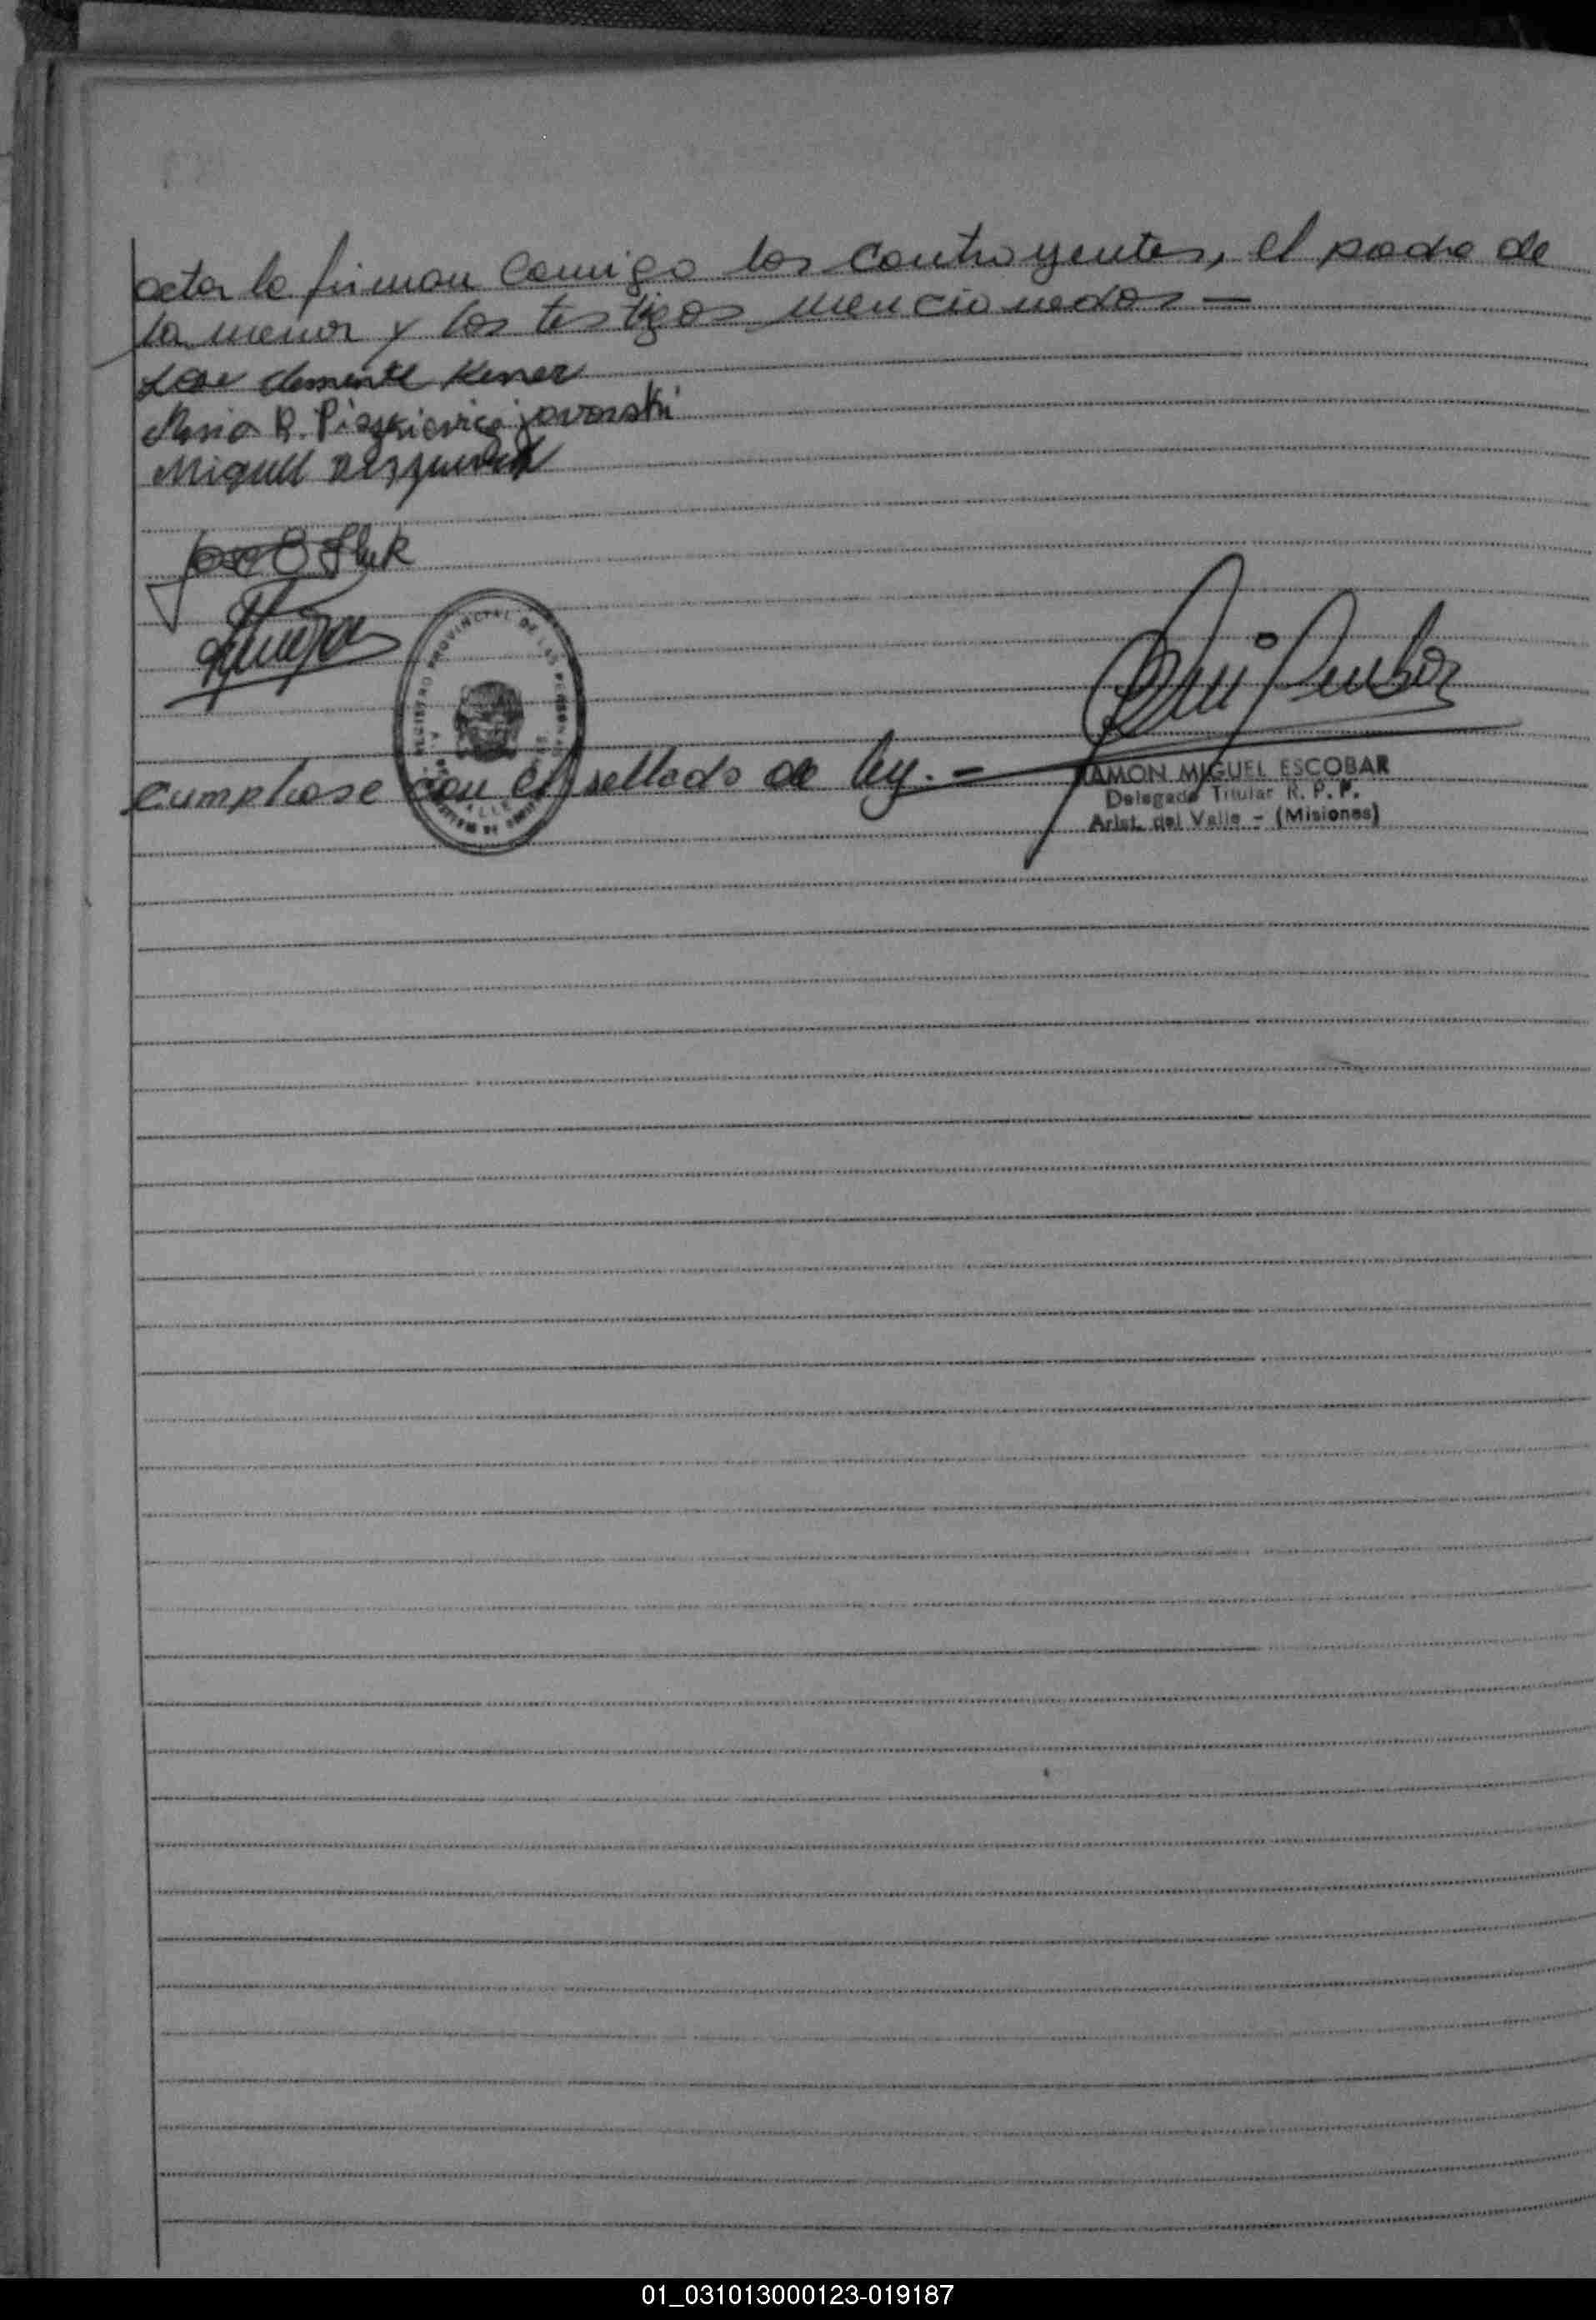 acta la firman comigo los contrayentes, el padre de
la menor y los testigos mencionados —
Jose clemente Kener
Maria R. Piaskievicz javorski
Miguel
Jose Sluk
REGISTRO PROVINCIAL DE LAS PERSONAS
VALLE
cumplase con el sellado de ley. =
RAMON MIGUEL ESCOBAR
Delegado Titular R. P. P.
Arist. del Valle - (Misiones)
01_031013000123-019187